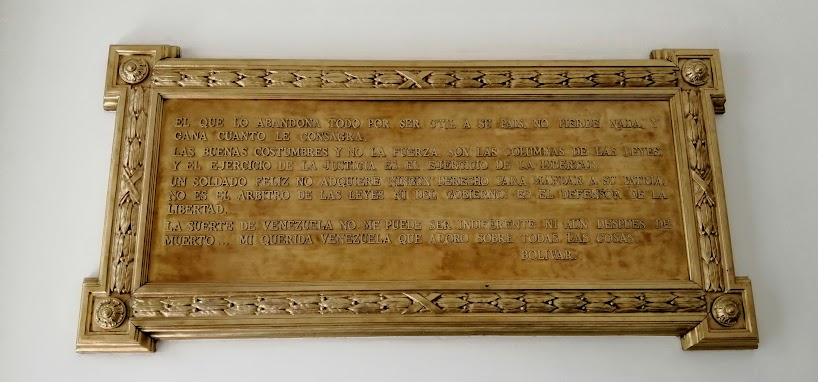 EL QUE LO ABANDONA TODO POR SER UTIL A SU PAIS, NO PIERDE NADA, Y
GANA CUANTO LE CONSAGRA.
LAS BUENAS COSTUMBRES Y NO LA FUERZA SON LAS COLUMNAS DE LAS LEYES,
Y EL EJERCICIO DE LA JUSTICIA ES EL EJERCICIO DE LA LIBERTAD.
UN SOLDADO FELIZ NO ADQUIERE NINGUN DERECHO PARA MANDAR A SU PATRIA.
NO ES EL ARBITRO DE LAS LEYES NI DEL GOBIERNO. ES EL DEFENSOR DE LA
LIBERTAD.
LA SUERTE DE VENEZUELA NO ME PUEDE SER INDIFERENTE NI AUN DESPUES DE
MUERTO... MI QUERIDA VENEZUELA QUE ADORO SOBRE TODAS LAS COSAS.
BOLIVAR.